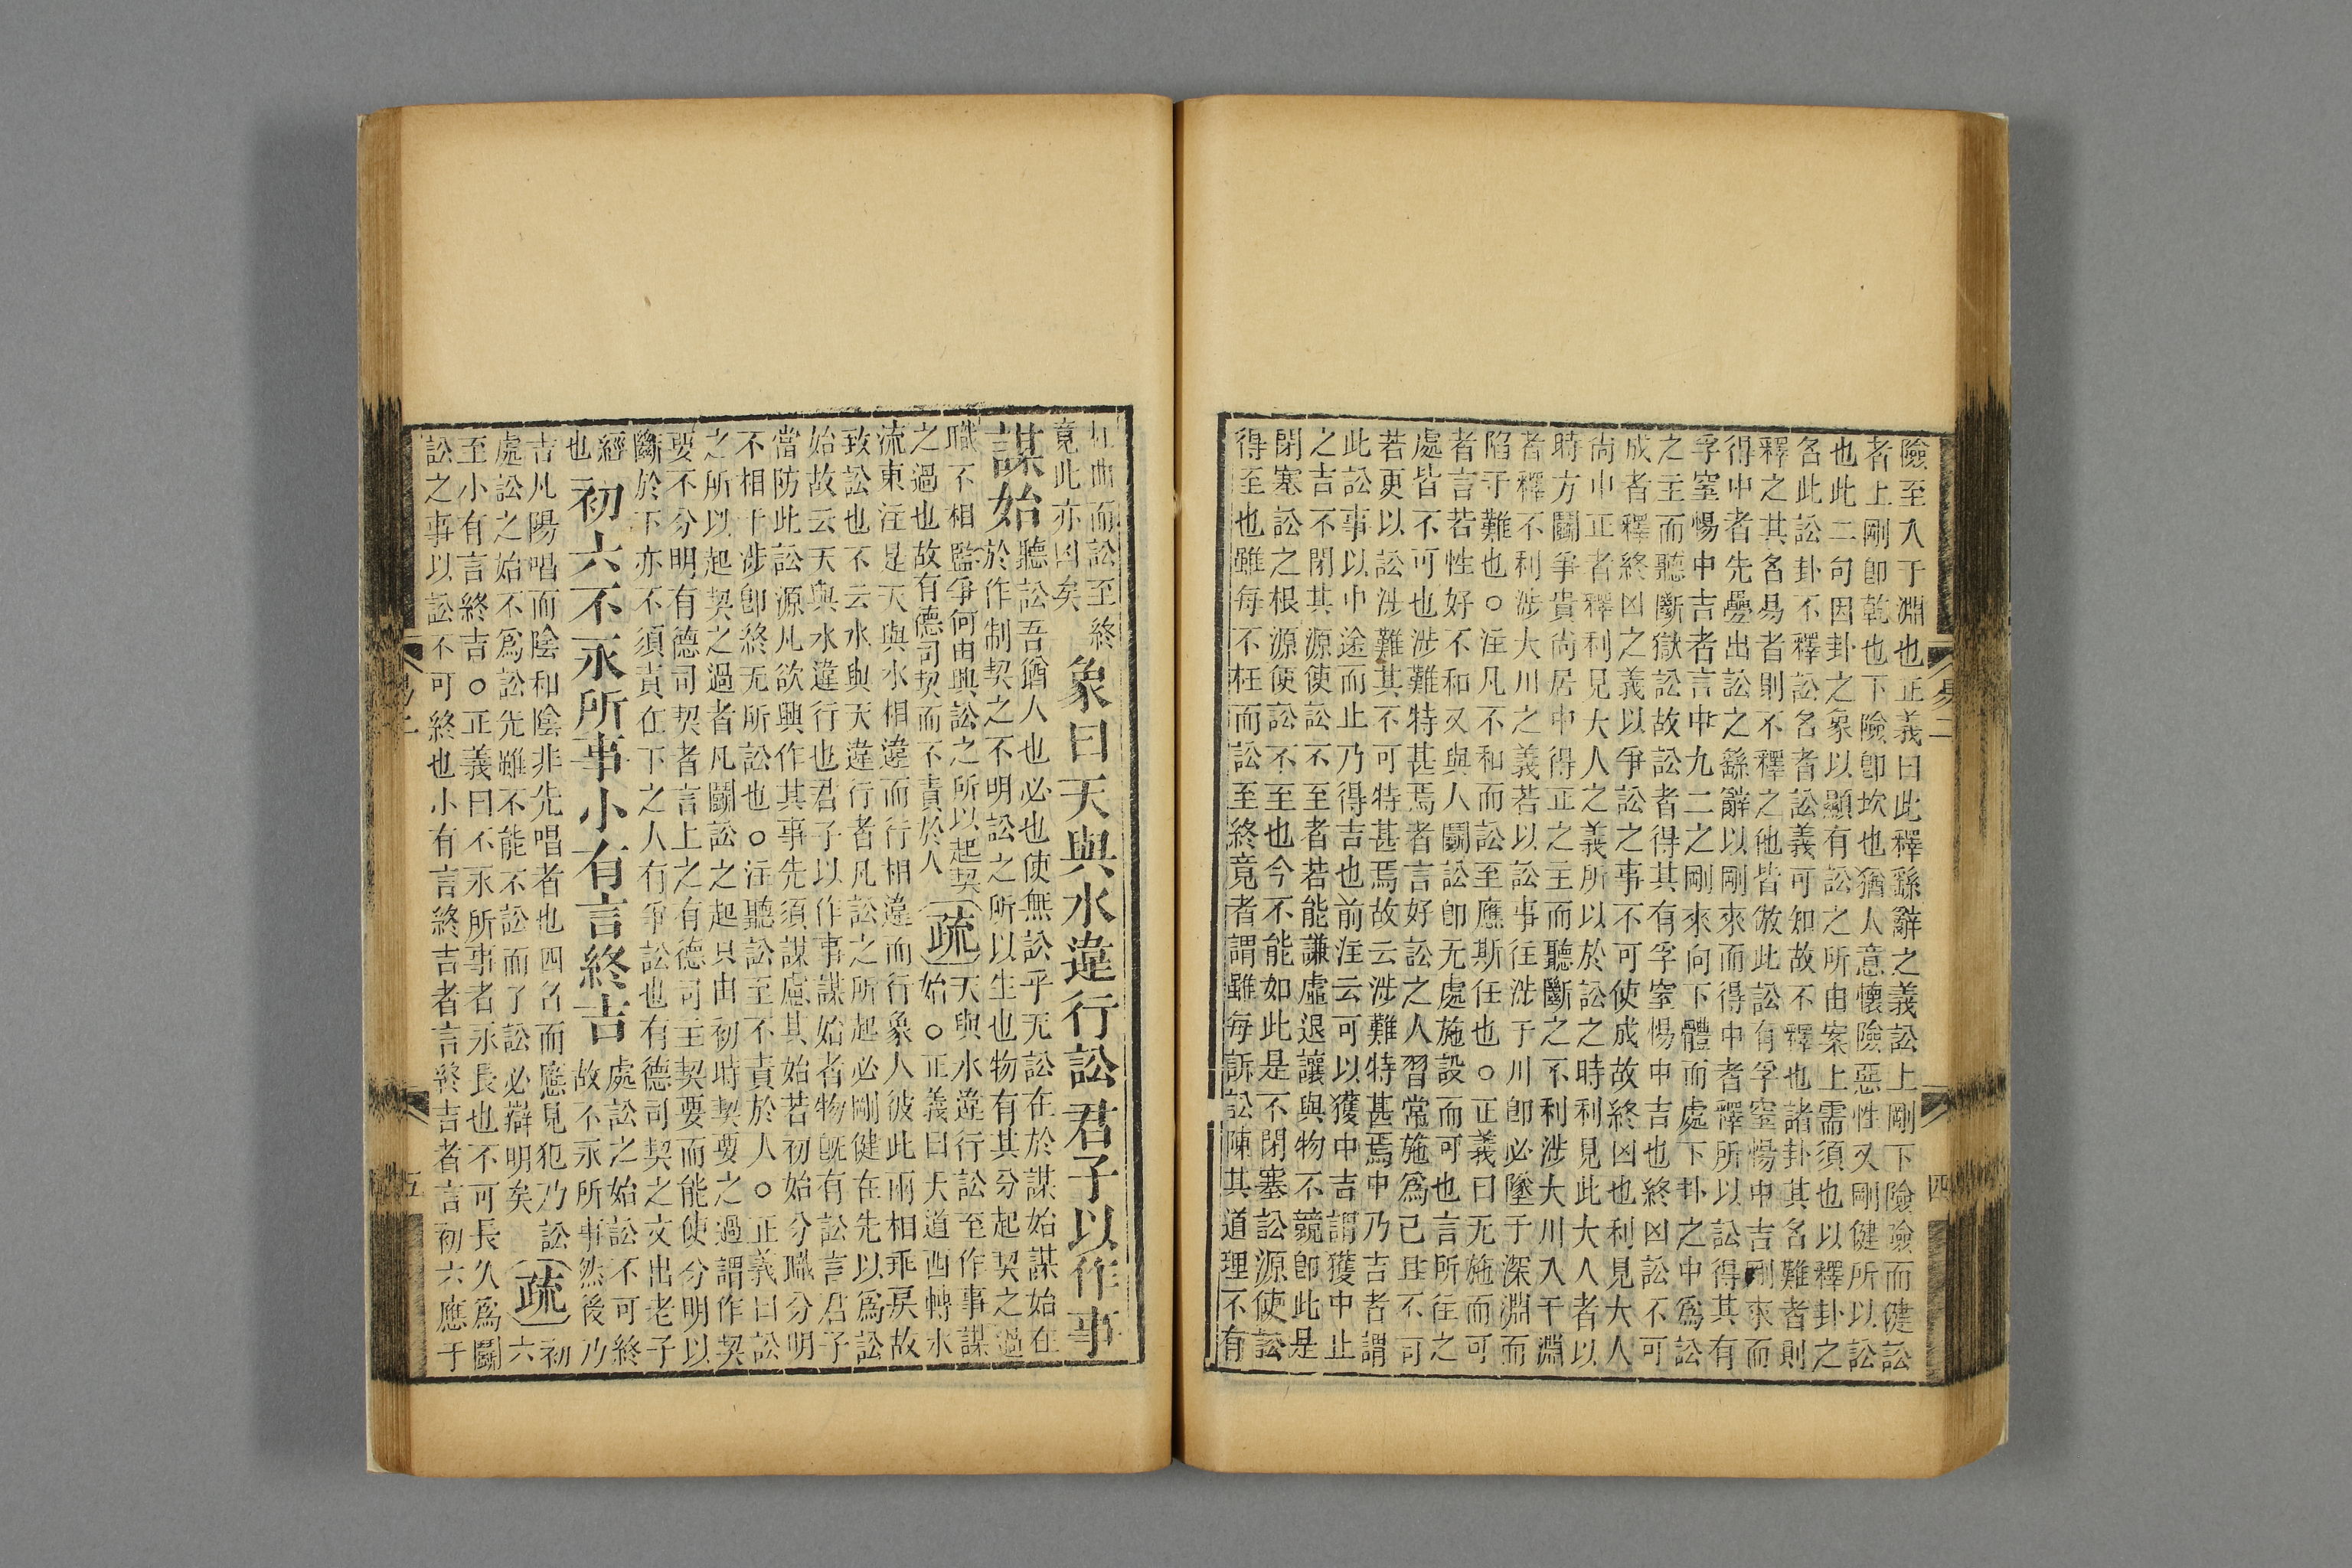 險至入于淵也正義曰此釋繇辭之義訟上剛下險險而健訟
者上剛卽乾也下險卽坎也猶人意懷險惡性又剛健所以訟
也此二句因卦之象以顯有訟之所由案上需須也以釋卦之
名此訟卦不釋訟名者訟義可知故不釋也諸卦其名難者則
釋之其名易者則不釋之他皆倣此訟有孚窒惕中吉剛來而
得中者先疊出訟之繇辭以剛來而得中者釋所以訟得其有
孚窒惕中吉者言中九二之剛來向下體而處下卦之中爲訟
之主而聽斷獄訟故訟者得其有孚窒惕中吉也終凶訟不可
成者釋終凶之義以爭訟之事不可使成故終凶也利見大人
尚中正者釋利見大人之義所以於訟之時利見此大人者以
時方鬭爭貴尚居中得正之主而聽斷之不利涉大川入于淵
者釋不利涉大川之義若以訟事往涉于川卽必墜于深淵而
陷于難也○注凡不和而訟至應斯任也○正義曰无施而可
者言若性好不和又與人鬭訟卽无處施設而可也言所往之
處皆不可也涉難特甚焉者言好訟之人習常施爲己且不可
若更以訟涉難其不可特甚焉故云涉難特甚焉中乃吉者謂
此訟事以中途而止乃得吉也前注云可以獲中吉謂獲中止
之吉不閉其源使訟不至者若能謙虛退讓與物不競卽此是
閉塞訟之根源使訟不至也今不能如此是不閉塞訟源使訟
得至也雖每不枉而訟至終竟者謂雖每訴訟陳其道理不有
易二
四
枉曲而訟至終
竟此亦凶矣
象曰天與水違行訟君子以作事
謀始
聽訟吾猶人也必也使無訟乎无訟在於謀始謀始在
於作制契之不明訟之所以生也物有其分起契之過
職不相監爭何由興訟之所以起契
之過也故有德司契而不責於人
疏
天與水違行訟至作事謀
始○正義曰天道西轉水
流東注是天與水相違而行相違而行象人彼此兩相乖戾故
致訟也不云水與天違行者凡訟之所起必剛健在先以爲訟
始故云天與水違行也君子以作事謀始者物旣有訟言君子
當防此訟源凡欲興作其事先須謀慮其始若初始分職分明
不相干涉卽終无所訟也○注聽訟至不責於人○正義曰訟
之所以起契之過者凡鬭訟之起只由初時契要之過謂作契
要不分明有德司契者言上之有德司主契要而能使分明以
斷於下亦不須責在下之人有爭訟也有德司契之文出老子
經
也
初六不永所事小有言終吉
處訟之始訟不可終
故不永所事然後乃
吉凡陽唱而陰和陰非先唱者也四召而應見犯乃訟
處訟之始不爲訟先雖不能不訟而了訟必辯明矣
疏
初
六
至小有言終吉○正義曰不永所事者永長也不可長久爲鬭
訟之事以訟不可終也小有言終吉者言終吉者言初六應于
五